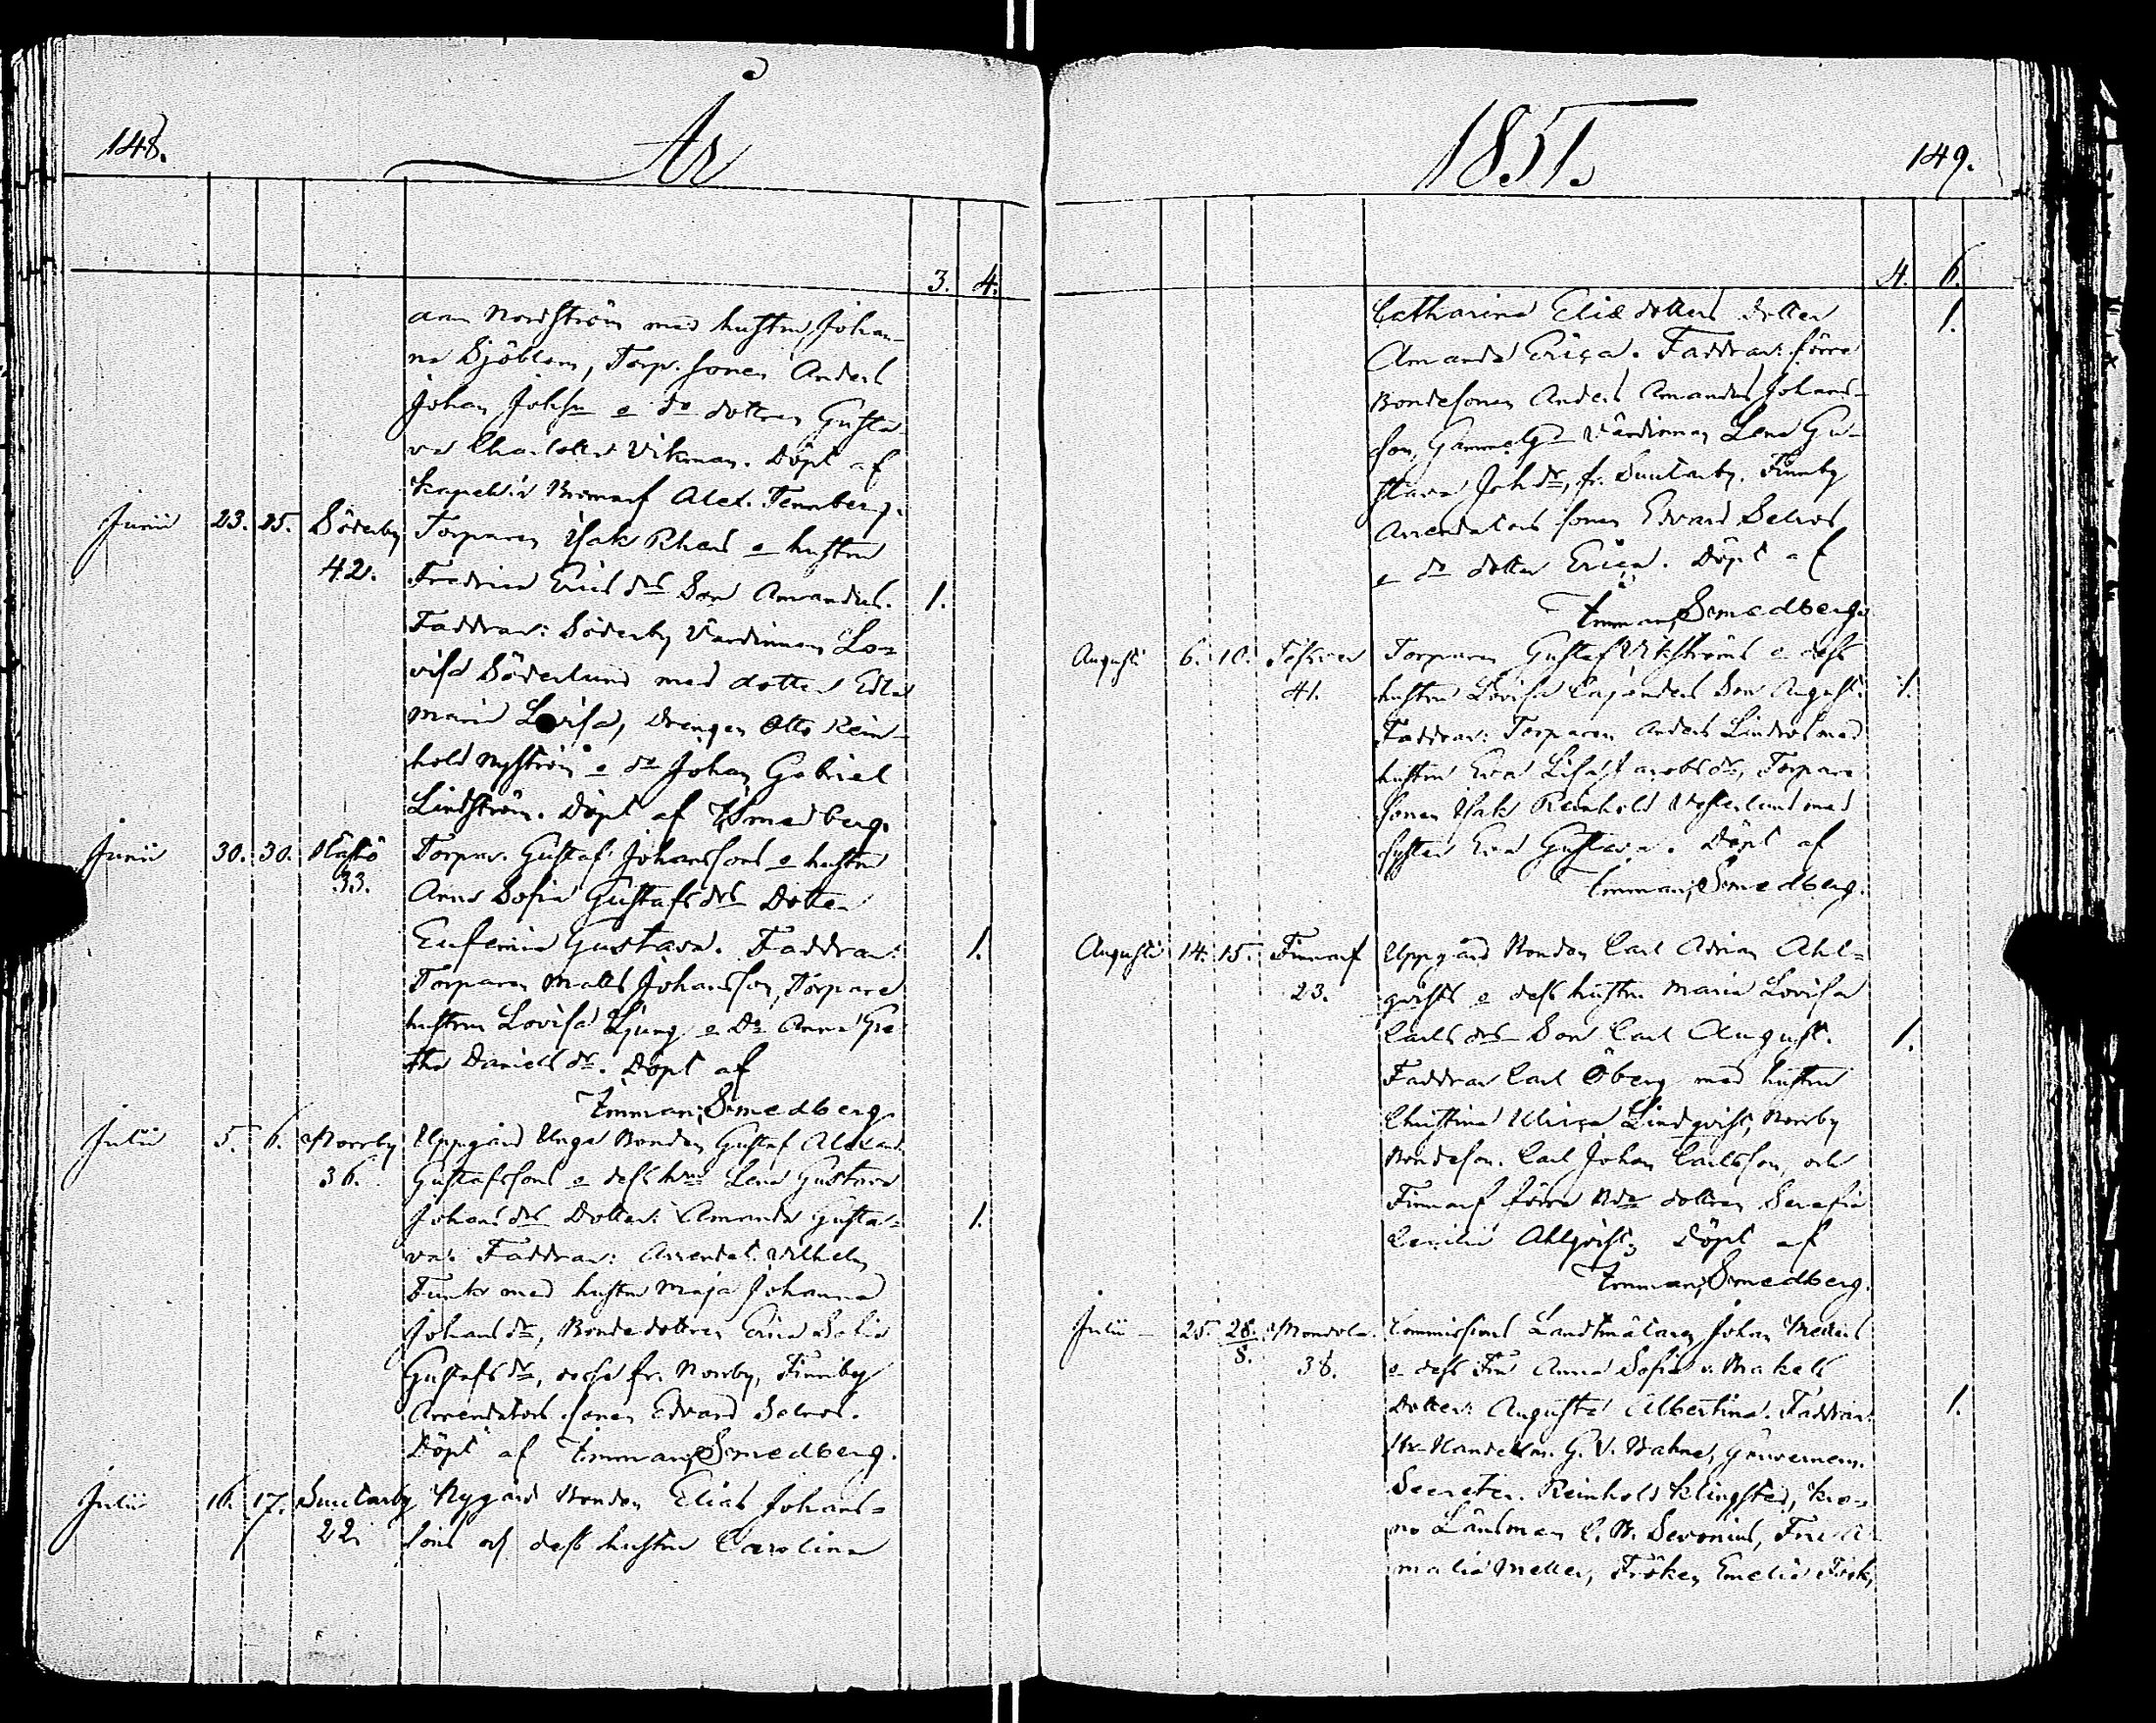 148.
År
3. 4.
dam Nordström med hustru Johan-
na Sjöblom, Torp. sonen Anders
Johan Johsn o do dottren Gusta-
va Charlotta Vikman. Döpt af
Kapel: i Bromarf Alex. Tennberg.
Junii 23. 25. Söderby Torparen Isak Rhens o hustru
42. Fredrica Erics drs Son Amandus. 1.
Faddrar: Söderby Värdinnan Lo-
visa Söderlund med dotter Edla
Maria Lovisa, Drengen Otto Rein-
hold Nyström o dr Johan Gabriel
Lindström. Döpt af ESmedberg.
Junii 30. 30. Torpar. Gustaf Johanssons o hustru
33. Anna Sofia Gustafs drs Dotter
Eufemia Gustava. Faddrar: 1.
Torparen Matts Johansson, Torpare
hustrun Lovisa Ljung o Do Anna Gre-
tha Daniels dr. Döpt af
Emman; Smedberg.
Julii 5. 6. Norrby Uppgård Unga Bonden Gustaf Alexand.
36. Gustafssons o dess hru Lena Gustava
Johans drs Dotter: Amanda Gusta- 1.
va. Faddrar: Arrendat. Vilhelm
Funk med hustru Maja Johanna
Johans dr, Bondedottren Erica Sofia
Gustafs dr, dessa fr. Norrby, Finnby
Arrendators sonen Edvard Selros.
Döpt af Emman; Smedberg.
Julii 16. 17. Suutarby Nygård Bonden Elias Johans-
22. sons och dess hustru Carolina
1851.
149.
4. 6.
Catharina Eliæ dotters dotter 1.
Amanda Erica. Faddrar: förre
Bondesonen Anders Amandus Johans-
son, Gammelgd Värdinnan Lena Gu-
stava Joh dr, fr. Suutarby. Finnby
Arrendators sonen Edvard Selros
o do dotter Erica. Döpt af
Emman; Smedberg.
Augusti 6. 10. Torparen Gustaf Vikströms o dess
41. hustru Lovisa Cajanders Son August. 1.
Faddrar: Torparen Anders Lindros med
hustru Eva Lisa Jacobs dr, Torpare
sonen Isak Reinhold Vesterlund med
syster Eva Gustava. Döpt af
Emman; Smedberg.
Augusti 14. 15. Finnarf Uppgård Bonden Carl Adrian Ahl-
23. qvists o dess hustru Maria Lovisa
Carls drs Son Carl August. 1.
Faddrar Carl Öberg med hustru
Christina Ulrica Lindqvist, Norrby
Bondeson. Carl Johan Carlsson, och
Finnarf förre Bde dottren Serafia
Cecilia Ahlqvist; Döpt af
Emman; Smedberg.
Julii 25. 28. 8. Commissions Landtmätaren Johan
38. o dess Fru Anna Sofia
Dotter: Augusta Albertina. Faddrar: 1.
Hr Handelsm. G. V. Guvernem.
Secreter. Reinhold Klingsted, Kro-
no Länsman C. W. Sevonius, Fru A-
malia Meller, Fröken Emelie